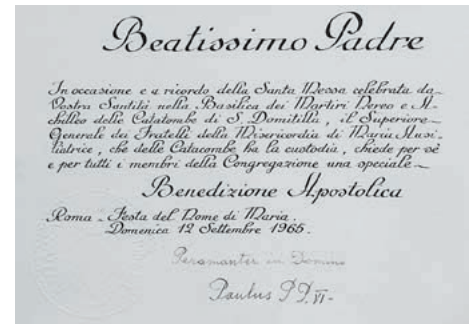 Beatissimo Padre
In occasione e a ricordo della Santa Messa celebrata da
Vostra Santità nella Basilica dei Martiri Nereo e A-
chilleo delle Catacombe di S. Domitilla, il Superiore
Generale dei Fratelli della Misericordia di Maria Ausi-
liatrice, che delle Catacombe ha la custodia, chiede per sè
e per tutti i membri della Congregazione una speciale
Benedizione Apostolica
Roma - Festa del Nome di Maria.
Domenica 12 Settembre 1965.
Peramanter in Domino
Paulus PP. VI-